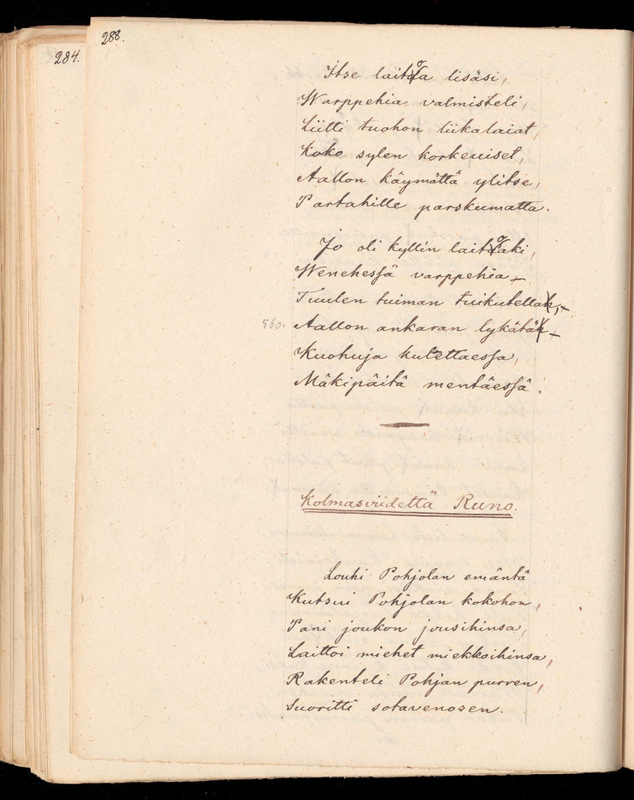 284.
288.
Itse laitoa lisäsi,
Warppehia valmisteli,
Liitti tuohon liikalaiat,
Koko sylen korkeuiset,
Aallon käymättä ylitse,
Partahille parskumatta.
Jo oli kyllin laitoaki,
Wenehessä varppehia –
Tuulen tuiman tuikutella, –
560. Aallon ankaran lykätä –
Kuohuja kulettaessa,
Mäkipäitä mentäessä.
Kolmasviidettä Runo.
Louhi Pohjolan emäntä
Kutsui Pohjolan kokohon,
Pani joukon jousihinsa,
Laittoi miehet miekkoihinsa,
Rakenteli Pohjan purren,
Suoritti sotavenosen.